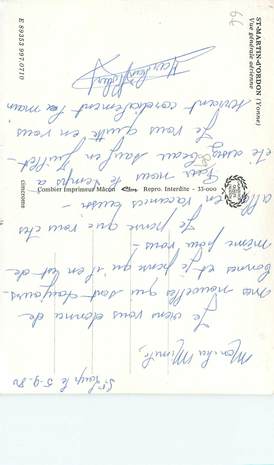 ST-MARTIN-d'ORDON (Yonne)
Vue générale aérienne
E 89353 997.0710
66
Combier Imprimeur Mâcon
Repro. Interdite - 33-000
le 5-9-80
Je viens vous donner de
mes nouvelles qui sont toujours
bonnes et je pense qu'il en est de
même pour vous -
Je pense que vous êtes
allé en vacances aussi -
Ici nous le temps a
été assez beau sauf en Juillet -
Je vous quitte en vous
serrant cordialement la main